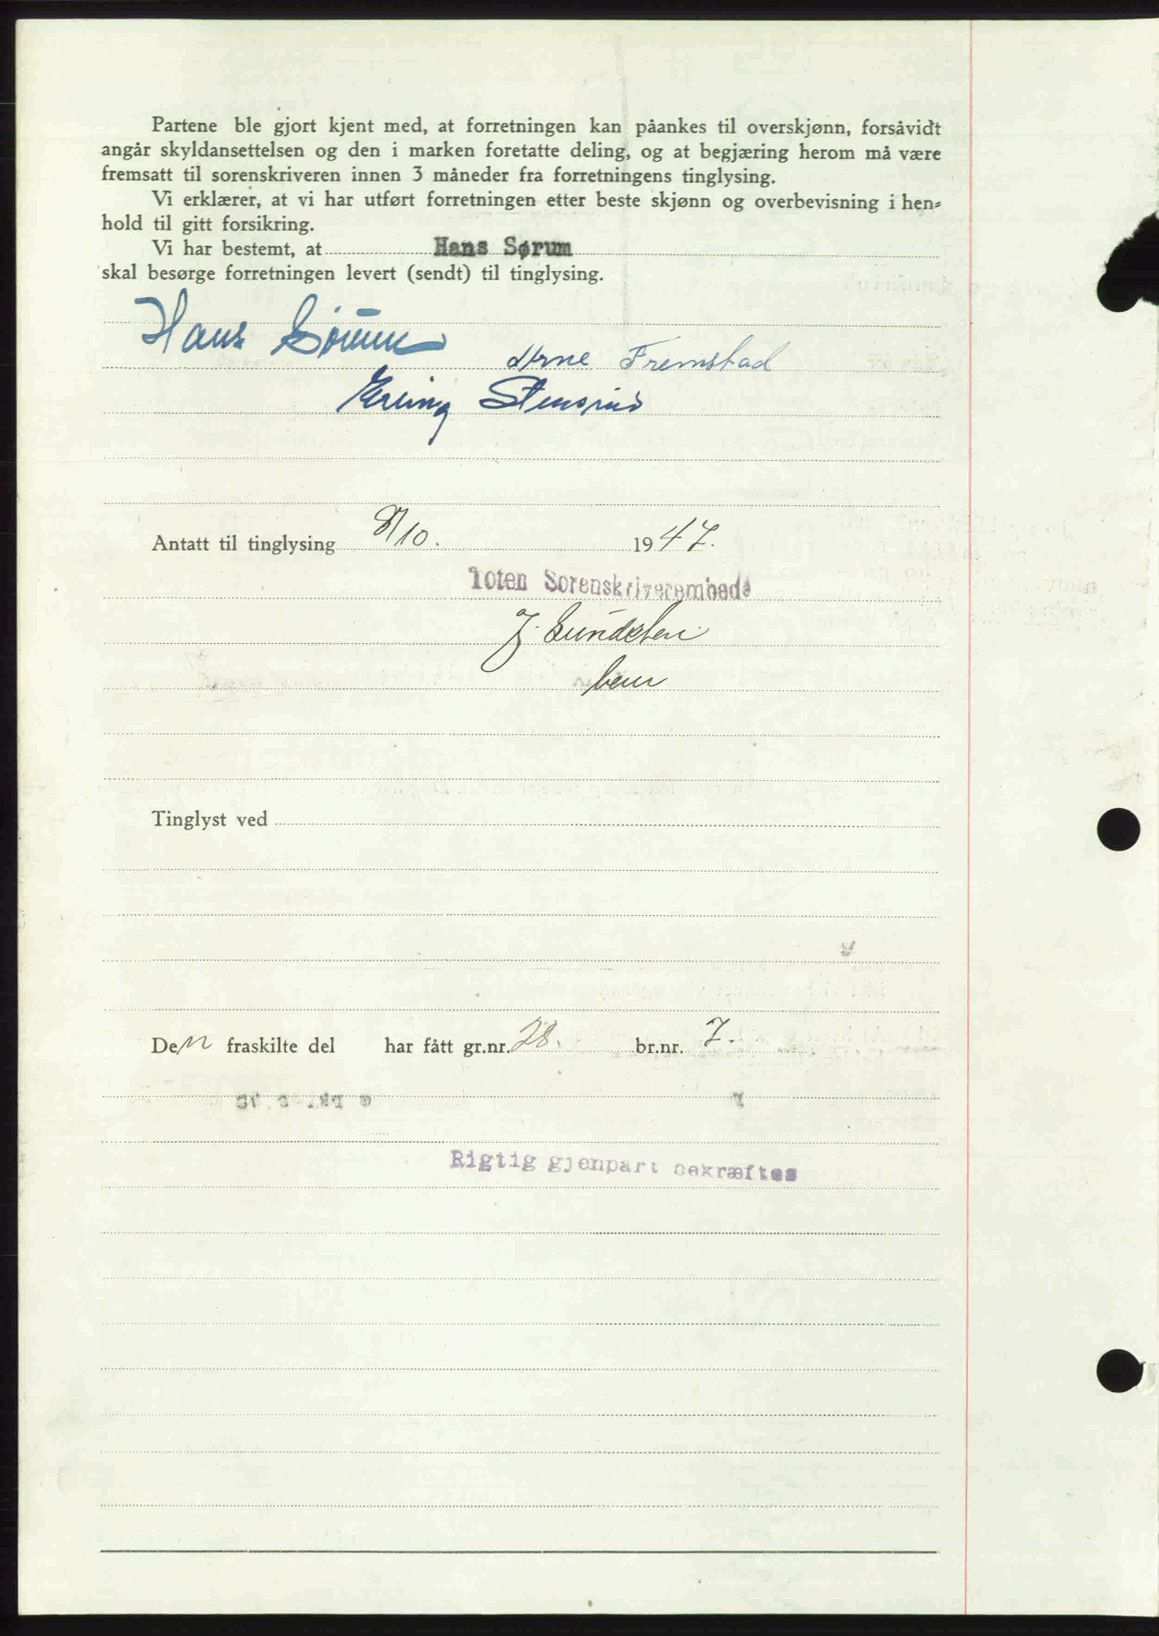 Partene ble gjort kjent med, at forretningen kan påankes til overskjønn, forsåvidt
angår skyldansettelsen og den i marken foretatte deling, og at begjæring herom må være
fremsatt til sorenskriveren innen 3 måneder fra forretningens tinglysing.
Vi erklærer, at vi har utført forretningen etter beste skjønn og overbevisning i hen=
hold til gitt forsikring.
Vi har bestemt, at Hans Sørum
skal besørge forretningen levert (sendt) til tinglysing.
Hans Sørum
Arne Fremstad
Erling Stensrud
Antatt til tinglysing 8/10. 1947.
Toten Sorenskriverembede
J. Sundsten
Tinglyst ved
Den fraskilte del har fått gr.nr. 28. br.nr. 7.
Rigtig gjenpart bekræftes